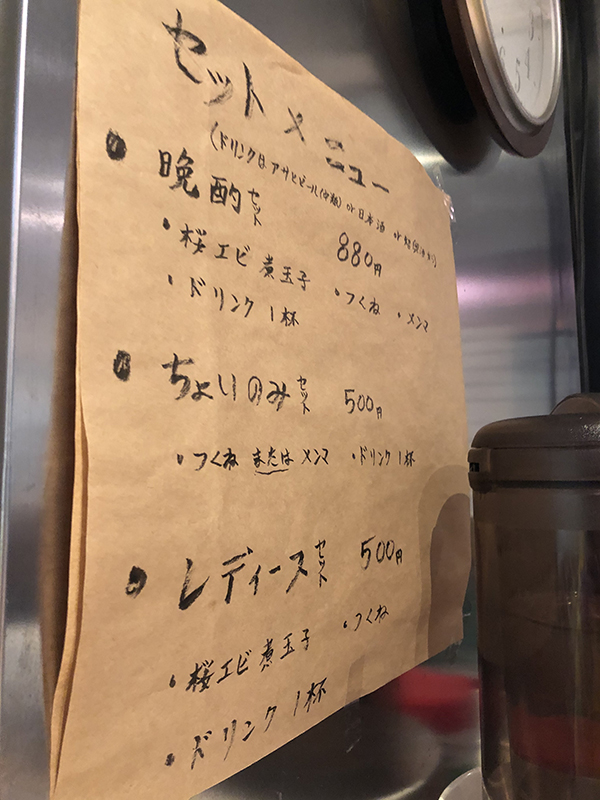 セットメニュー
(ドリンクは アサヒビール(中瓶) or 日本酒 or
晩酌セット 880円
・桜エビ煮玉子 ・つくね ・メンマ
・ドリンク1杯
ちょいのみセット 500円
・つくね または メンマ ・ドリンク1杯
レディースセット 500円
・桜エビ煮玉子 ・つくね
・ドリンク1杯